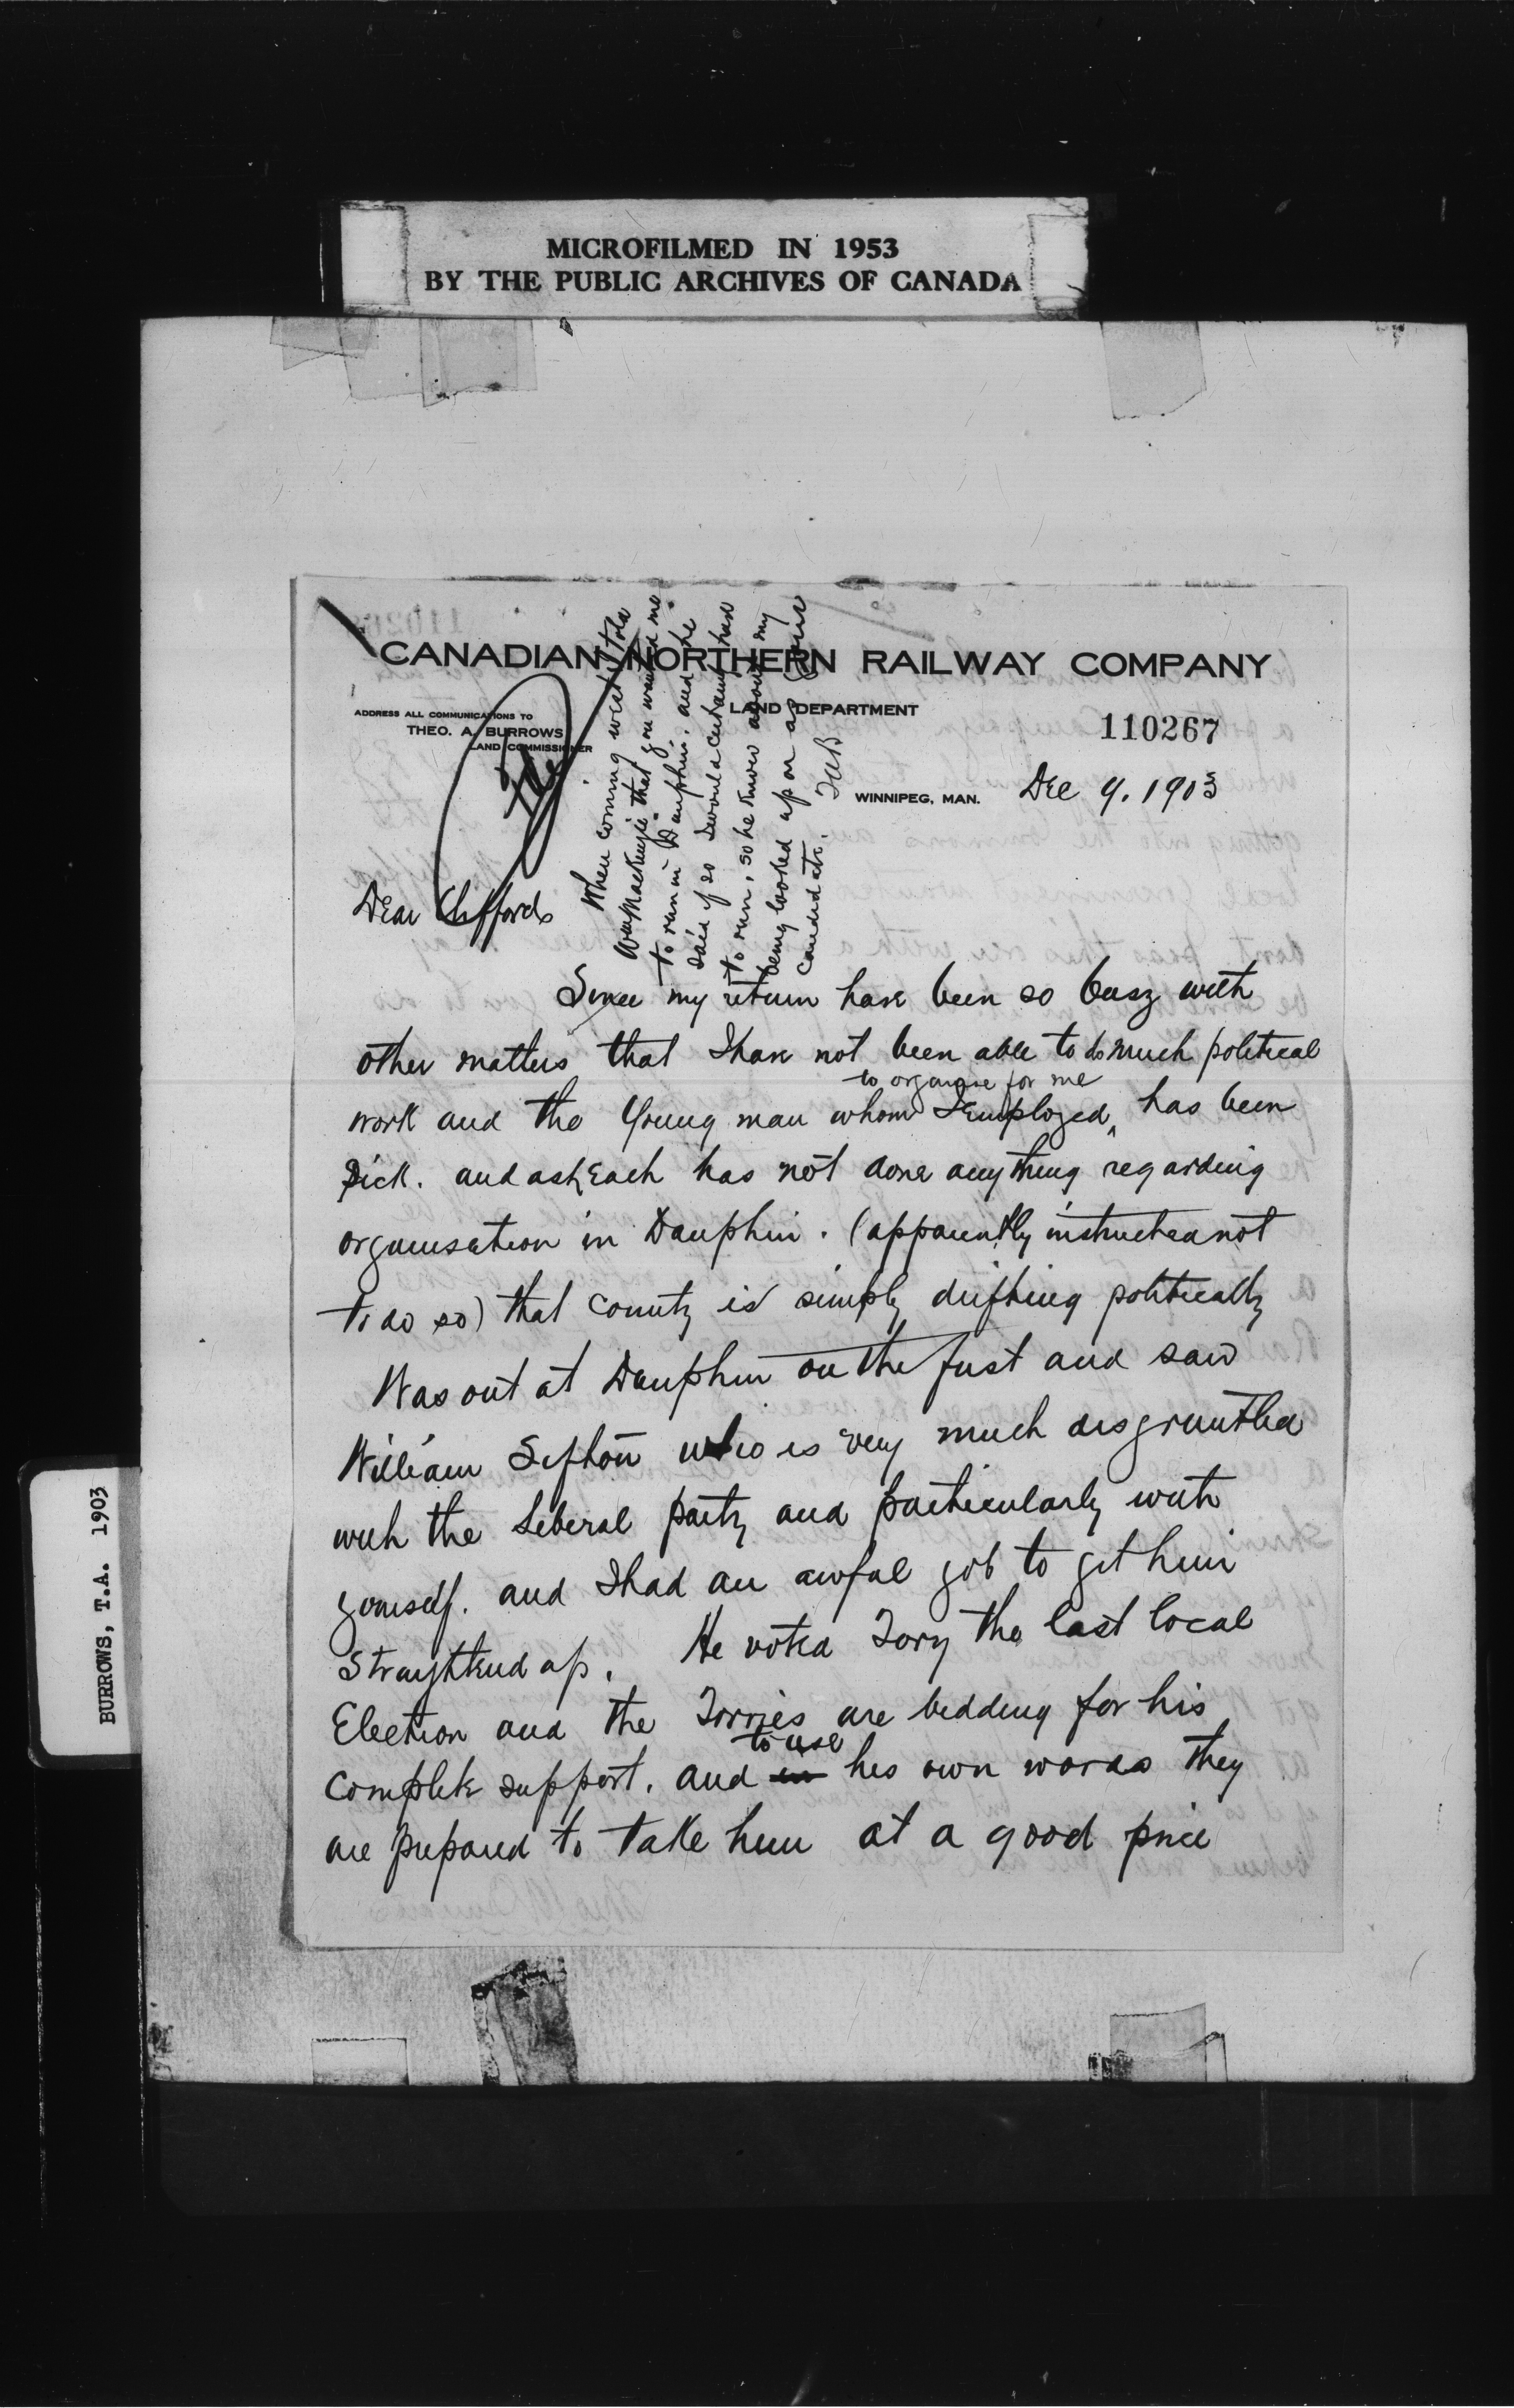 MICROFILMED IN 1953
BY THE PUBLIC ARCHIVES OF CANADA
CANADIAN NORTHERN RAILWAY COMPANY
LAND DEPARTMENT
ADDRESS ALL COMMUNICATIONS TO
THEO. A. BURROWS
LAND COMMISSIONER
110267
File
WINNIPEG, MAN. Dec 9. 1903
When coming west I told
Wm MacKenzie that you wanted me
to run in Dauphin. and he
said if so I would certainly have
to run, so he knows about my
being looked upon as
candidate.
TAB
Dear Clifford
Since my return have been so busy with
other matters that I have not been able to do much political
to organise for me
work and the young man whom I employed, has been
sick. and as Leach has not done anything regarding
organisation in Dauphin. (apparently instructed not
to do so) that county is simply drifting politically
Was out at Dauphin on the first and saw
William Sifton who is very much disgruntled
with the Liberal party and particularly with
yourself. and I had an awful job to get him
straightend up. He voted Tory the last local
Election and the Torries are bidding for his
to use
complete support. and in his own words they
are prepared to take him at a good price
BURROWS, T.A. 1903